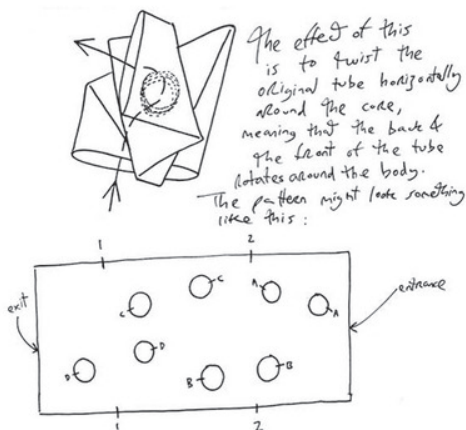 The effect of this
is to twist the
original tube horizontally
around the core,
meaning that the back &
the front of the tube
rotates around the body.
The pattern might look something
like this:
1 2
exit
entrance
C C A A
D D B B
1 2